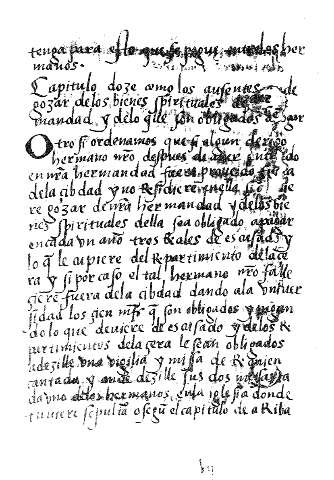 tenga para ello que se pague entre los her
manos.
Capitulo doze como los ausentes de
gozar de los bienes spirituales de la
mandad y de lo que son obligados pagar
Otro si ordenamos que si algun clerigo
hermano nro despues de aver entrado
en nra hermandad fuere proveydo
de la cibdad y no Residiere en ella si
re gozar de nra hermandad y de los bie
nes spirituales della sea obligado a pagar
en cada vn año tres Reales de escusados y
lo q̃ le cupiere del Repartimiento de la ce
ra y si por caso el tal hermano nro falle
sciere fuera de la cibdad dando a la vniver
sidad los cien mrs q̃ son obligados y
de lo que deviere de escusado y de los Re
partimientos de la cera le sean obligados
a dezille vna vigilia y missa de Requien
cantada y a dezille sus dos missas ca
da vno de los hermanos en la iglesia donde
tuviere sepultura segũ el capitulo de a Riba